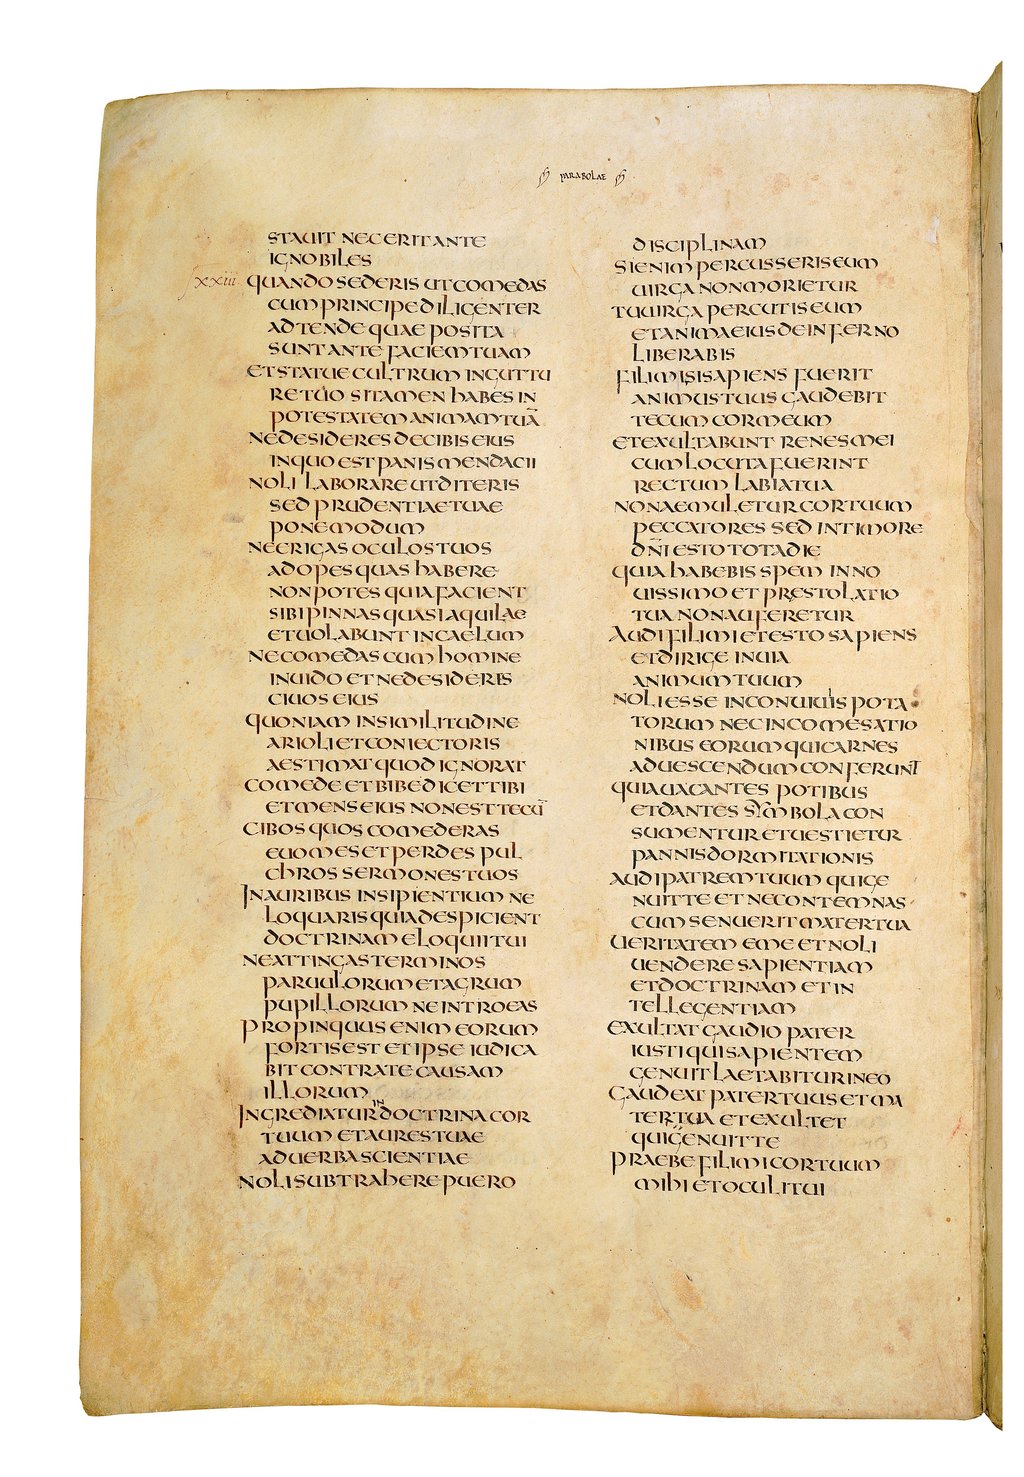 PARABOLAE
STAUIT NEC ERIT ANTE
IGNOBILES
xxiii QUANDO SEDERIS UT COMEDAS
CUM PRINCIPE DILIGENTER
ADTENDE QUAE POSITA
SUNT ANTE FACIEM TUAM
ET STATUE CULTRUM IN GUTTU
RE TUO SI TAMEN HABES IN
POTESTATEM ANIMAM TUĀ
NE DESIDERES DE CIBIS EIUS
IN QUO EST PANIS MENDACII
NOLI LABORARE UT DITERIS
SED PRUDENTIAE TUAE
PONE MODUM
NE ERIGAS OCULOS TUOS
AD OPES QUAS HABERE
NON POTES QUIA FACIENT
SIBI PINNAS QUASI AQUILAE
ET UOLABUNT IN CAELUM
NE COMEDAS CUM HOMINE
INUIDO ET NE DESIDERIS
CIUOS EIUS
QUONIAM IN SIMILITUDINE
ARIOLI ET CONIECTORIS
AESTIMAT QUOD IGNORAT
COMEDE ET BIBE DICET TIBI
ET MENS EIUS NON EST TECŪ
CIBOS QUOS COMEDERAS
EUOMES ET PERDES PUL
CHROS SERMONES TUOS
IN AURIBUS INSIPIENTIUM NE
LOQUARIS QUIA DESPICIENT
DOCTRINAM ELOQUII TUI
NE ATTINGAS TERMINOS
PARUULORUM ET AGRUM
PUPILLORUM NE INTROEAS
PROPINQUUS ENIM EORUM
FORTIS EST ET IPSE IUDICA
BIT CONTRA TE CAUSAM
ILLORUM
INGREDIATUR IN DOCTRINA COR
TUUM ET AURES TUAE
AD UERBA SCIENTIAE
NOLI SUBTRAHERE PUERO
DISCIPLINAM
SI ENIM PERCUSSERIS EUM
UIRGA NON MORIETUR
TU UIRGA PERCUTIS EUM
ET ANIMA EIUS DE INFERNO
LIBERABIS
FILI MI SI SAPIENS FUERIT
ANIMUS TUUS GAUDEBIT
TECUM COR MEUM
ET EXULTABUNT RENES MEI
CUM LOCUTA FUERINT
RECTUM LABIA TUA
NON AEMULETUR COR TUUM
PECCATORES SED IN TIMORE
DN̄I ESTO TOTA DIE
QUIA HABEBIS SPEM IN NO
UISSIMO ET PRESTOLATIO
TUA NON AUFERETUR
AUDI FILI MI ET ESTO SAPIENS
ET DIRIGE IN UIA
ANIMUM TUUM
NOLI ESSE IN CONUIUIIS POTA
TORUM NEC IN COMESATIO
NIBUS EORUM QUI CARNES
AD UESCENDUM CONFERUNT
QUIA UACANTES POTIBUS
ET DANTES SYMBOLA CON
SUMENTUR ET UESTIETUR
PANNIS DORMITATIONIS
AUDI PATREM TUUM QUI GE
NUIT TE ET NE CONTEMNAS
CUM SENUERIT MATER TUA
UERITATEM EME ET NOLI
UENDERE SAPIENTIAM
ET DOCTRINAM ET IN
TELLEGENTIAM
EXULTAT GAUDIO PATER
IUSTI QUI SAPIENTEM
GENUIT LAETABITUR IN EO
GAUDEAT PATER TUUS ET MA
TER TUA ET EXULTET
QUI GENUIT TE
PRAEBE FILI MI COR TUUM
MIHI ET OCULI TUI